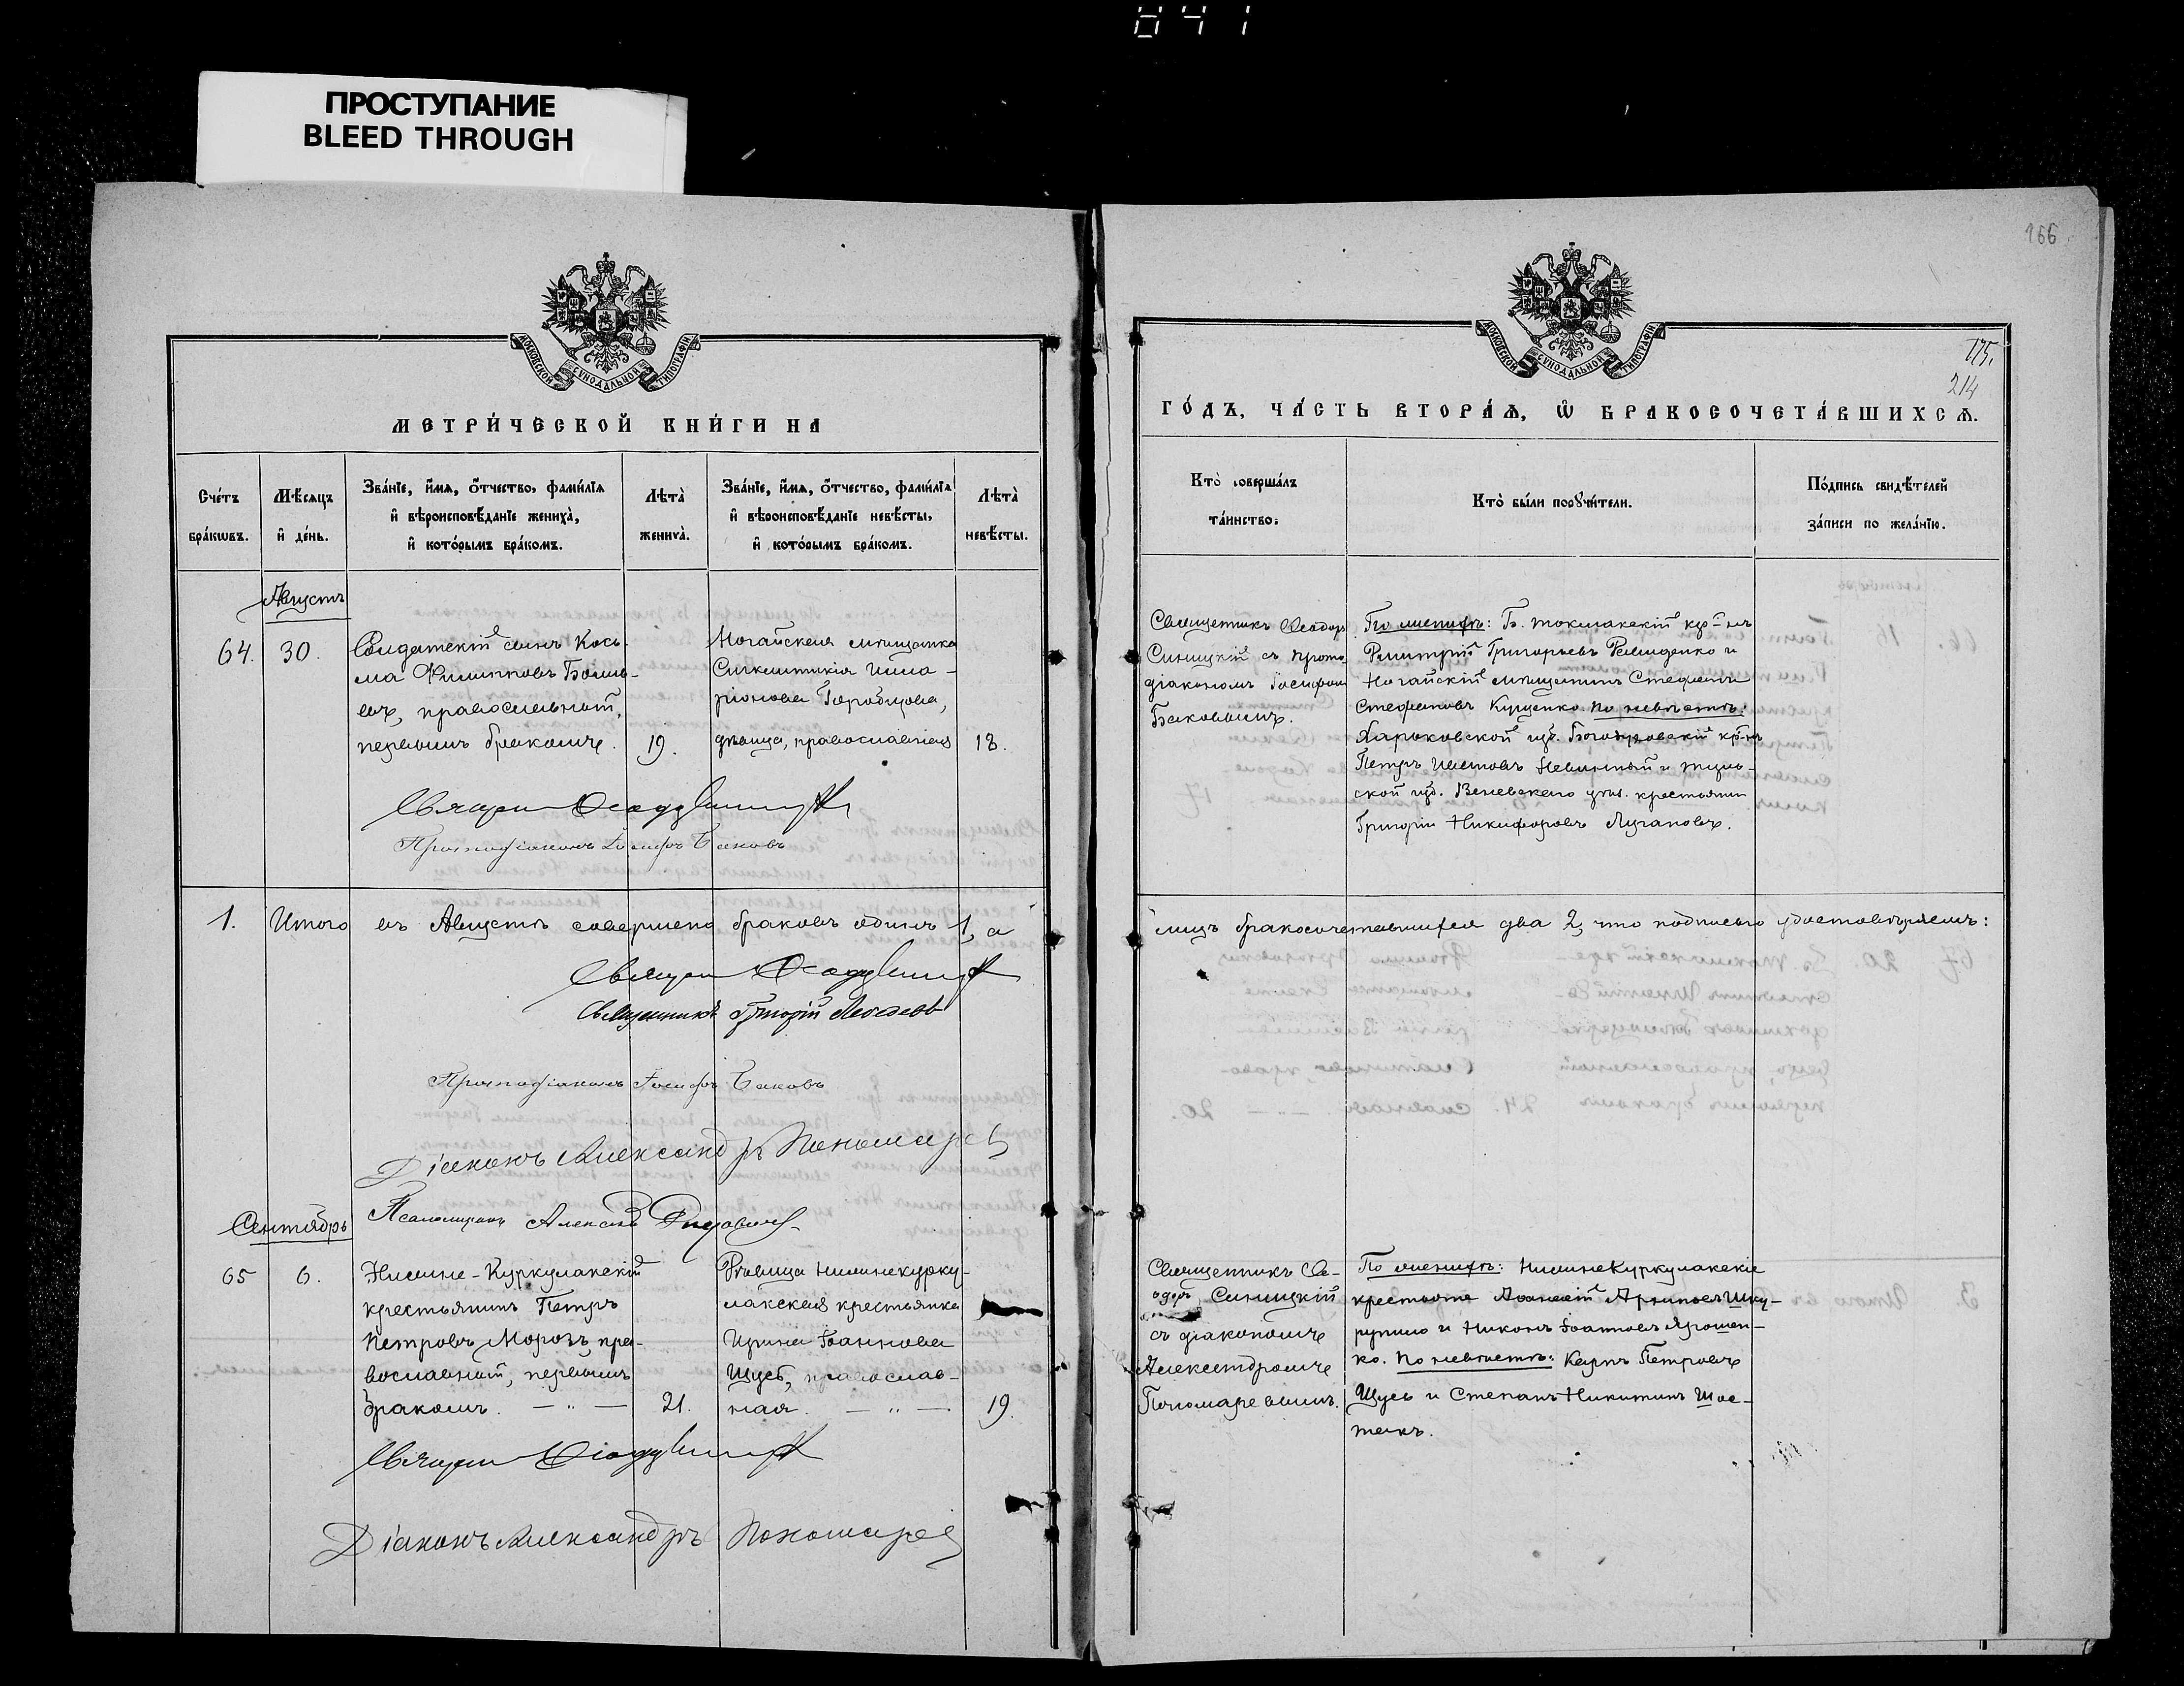 041
ПРОСТУПАНИЕ
BLEED THROUGH
166
МОСКОВСКОЙ СѴНОДАЛЬНОЙ ТИПОГРАФІИ
МЕТРИ́ЧЕСКОЙ КНИ́ГИ НА
Сче́тъ бра́кѡвъ.
Мѣ́сяцъ и҆ де́нь.
Зва́нїе, и҆́мѧ, ѻ҆́тчество, фами́лїѧ и҆ вѣроисповѣ́данїе жениха̀, и҆ кото́рымъ бра́комъ.
Лѣта̀ жениха̀.
Зва́нїе, и҆́мѧ, ѻ҆́тчество, фами́лїѧ и҆ вѣроисповѣ́данїе невѣ́сты, и҆ кото́рымъ бра́комъ.
Лѣта̀ невѣ́сты.
Августъ
64.
30.
Солдатскій сынъ Кось-
ма Филипповъ
православный,
первымъ бракомъ.
19.
Ногайская мѣщанка
Синклитикія Илла-
ріонова
дѣвица, православная
18.
Протодіаконъ Іосифъ Баковъ
1. Итого въ Августѣ совершено браковъ одинъ 1, а
Священникъ Григорій
Протодіаконъ Іосифъ Баковъ
Діаконъ Александръ Пономарев
Псаломщикъ
Сентябрь
65
6.
Нижне-Куркулакскій
крестьянинъ Петръ
Петровъ Морозъ, пра-
вославный, первымъ
бракомъ. — „ —
21.
Дѣвица Нижнекурку-
лакская крестьянка
Ирина Іоаннова
Щусь, православ-
ная. — „ —
19.
Діаконъ Александръ Пономарев
МОСКОВСКОЙ СѴНОДАЛЬНОЙ ТИПОГРАФІИ
175.
214
ГО́ДЪ, ЧА́СТЬ ВТОРА́Ѧ, Ѽ БРАКОСОЧЕТА́ВШИХСѦ.
Кто̀ соверша́лъ та́инство.
Кто̀ бы́ли порꙋчи́тели.
По́дпись свидѣ́телей за́писи по жела́нїю.
Священникъ Ѳеодоръ
Синицкій съ прото-
діакономъ Іосифомъ
Баковымъ.
По женихѣ: Б. Токмакскій кр-нъ
Димитрій Григорьевъ и
Ногайскій мѣщанинъ Стефанъ
Стефановъ Куценко. По невѣстѣ:
Харьковской губ. Богодуховскій кр-нъ
Петръ и Туль-
ской губ. Веневскаго уѣзд. крестьянин
Григорій Никифоровъ Лугановъ.
лицъ бракосочетавшихся два 2, что подписью удостовѣряемъ:
Священникъ Ѳе-
одоръ Синицкій
съ діакономъ
Александромъ
Пономаревымъ.
По женихѣ: Нижнекуркулакскіе
крестьяне Аѳанасій Архиповъ Шку-
рупило и Никонъ Іоанновъ Ярошен-
ко. По невѣстѣ: Карпъ Петровъ
Щусь и Степанъ Никитинъ Шос-
такъ.